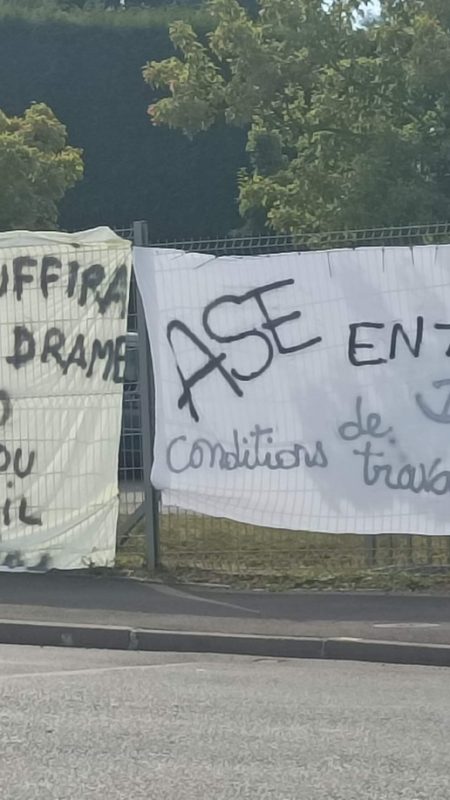 UFFIRA
DRAME
OU
IL
ASE EN
conditions de
trava